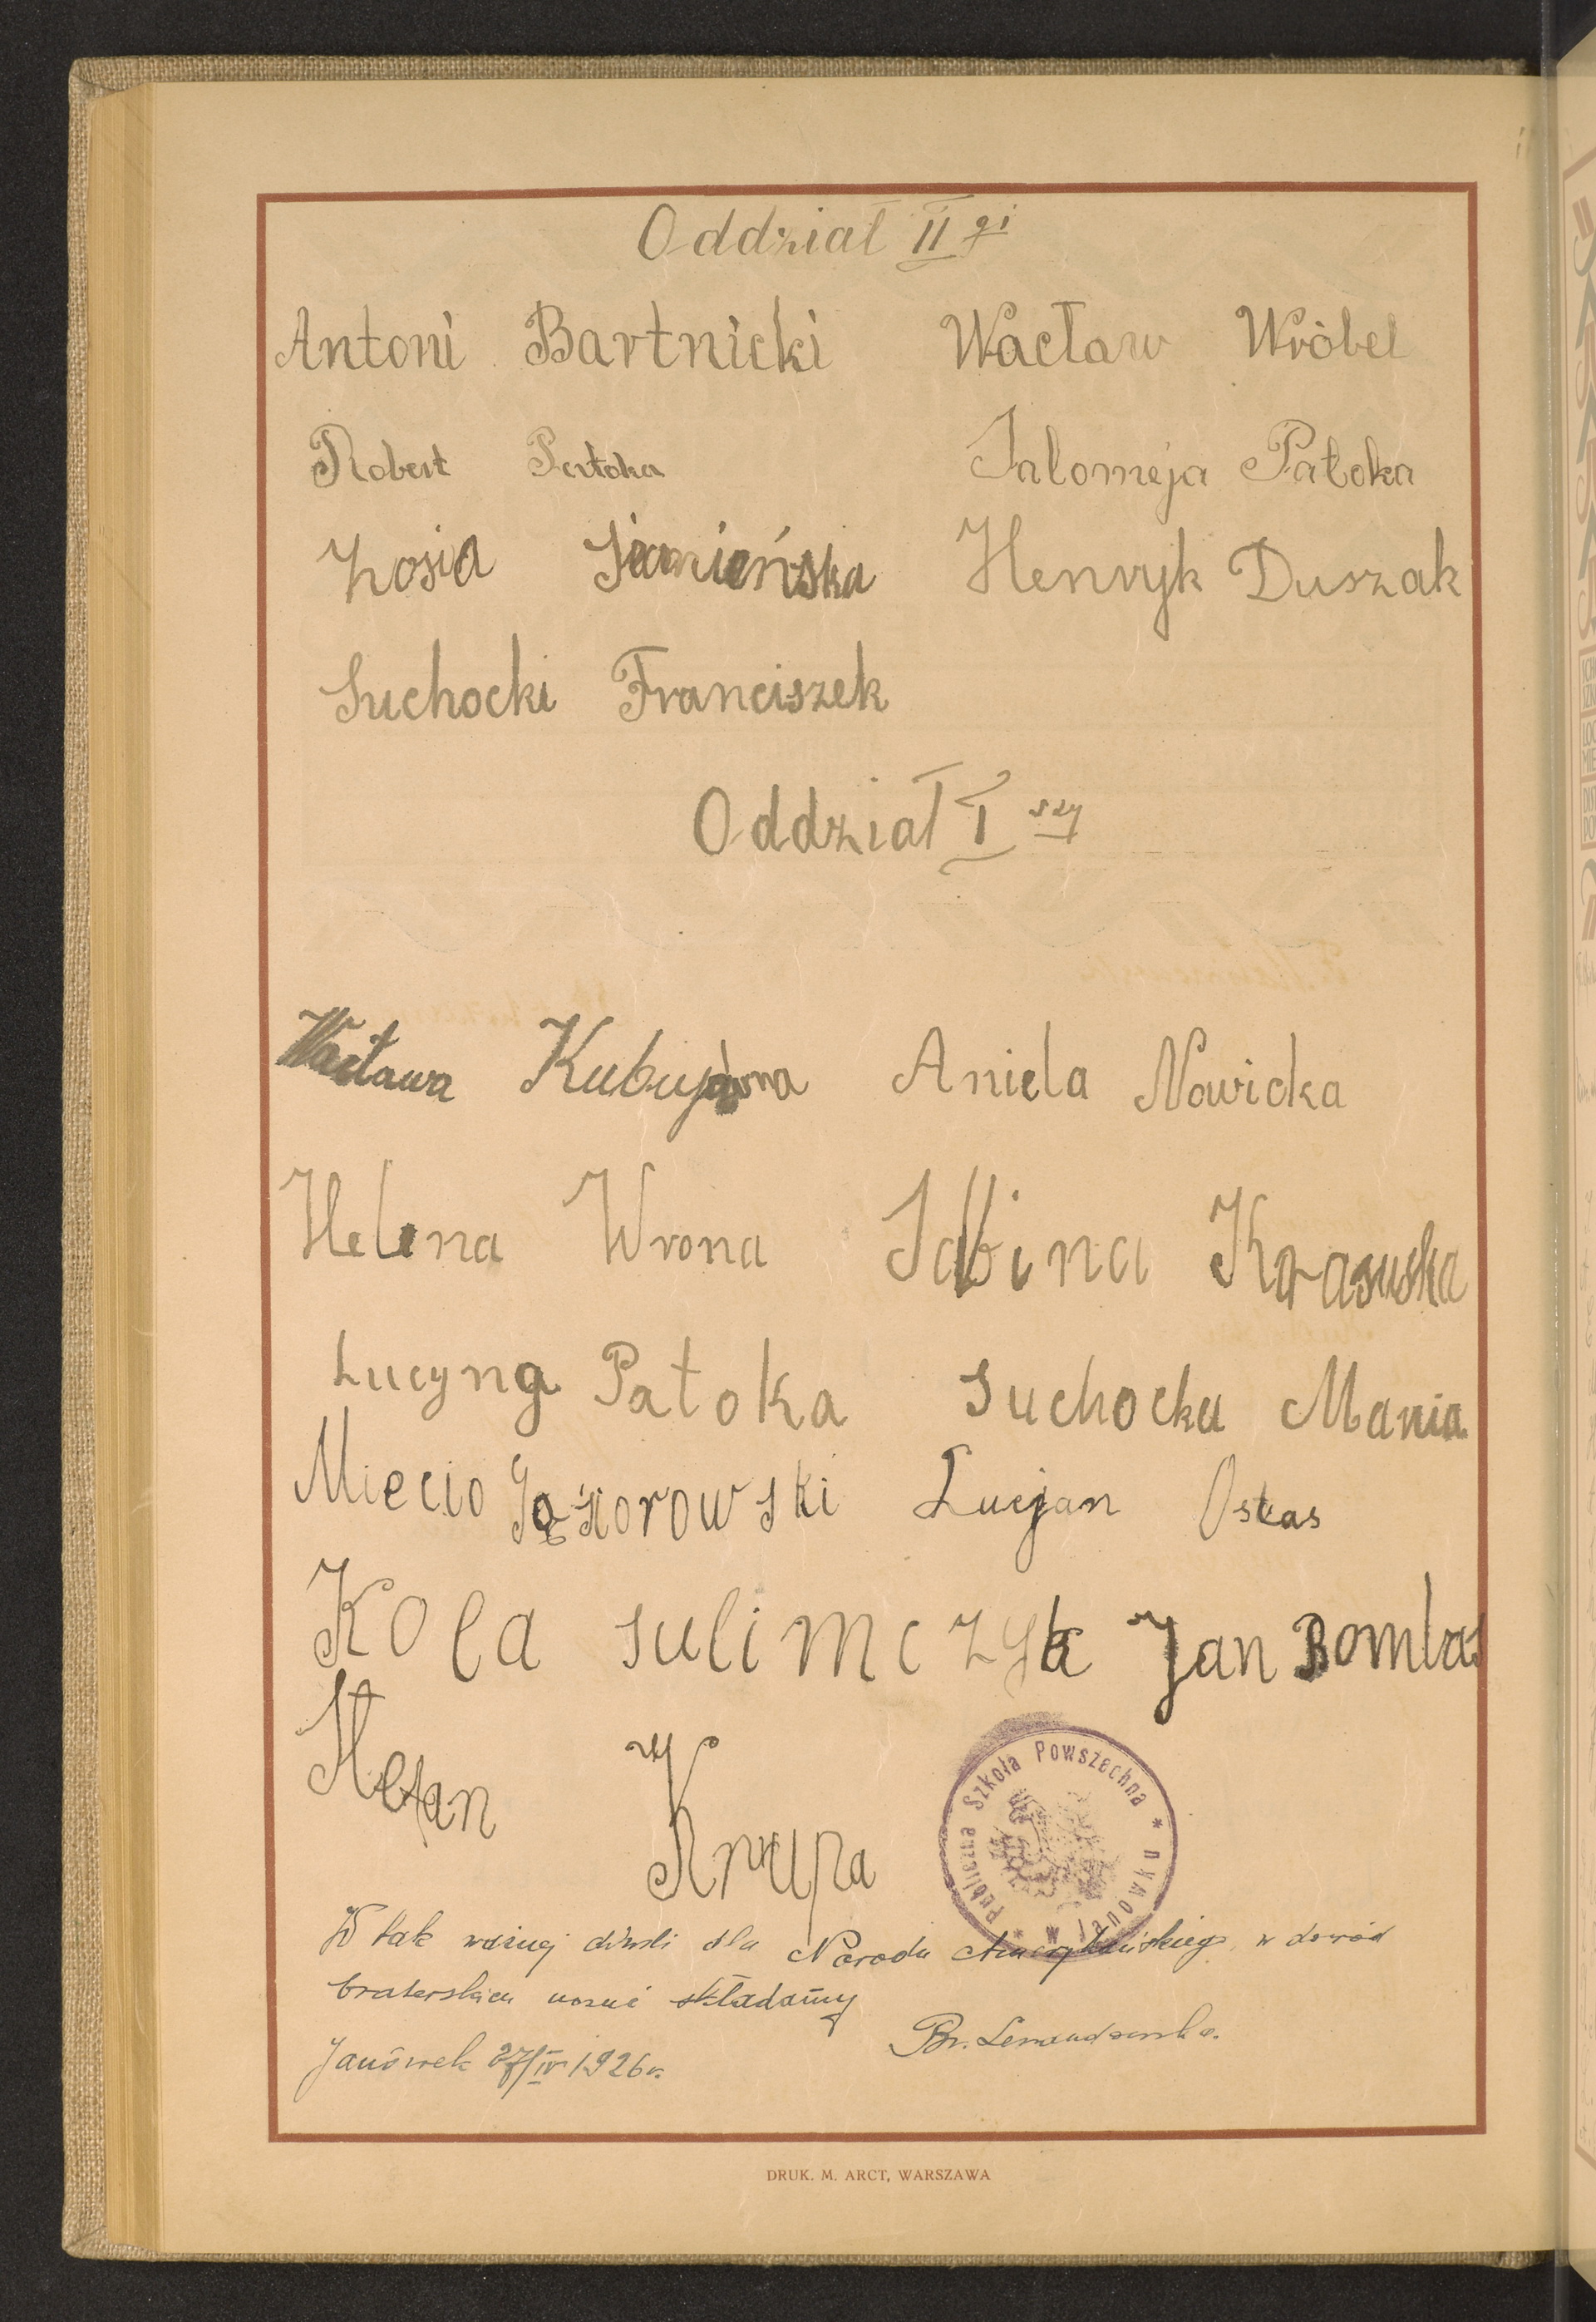 Oddział II gi
Antoni Bartnicki Wacław Wróbel
Robert Patoka Salomeja Patoka
Zosia Sianieńska Henryk Duszak
Suchocki Franciszek
Oddział I szy
Wacława Kubujówna Aniela Nowicka
Helena Wrona Sabina Krasuska
Lucyna Patoka Suchocka Mania
Miecio Gąsiorowski Lucjan Oskas
Kola Sulimczyk Jan Bombas
Stefan Krupa
Publiczna Szkoła Powszechna * w Janówku *
W tak ważnej chwili dla Narodu Amerykańskiego w dowód
braterskich uczuć składamy
Br.
Janówek 27/IV 1926 r.
DRUK. M. ARCT, WARSZAWA